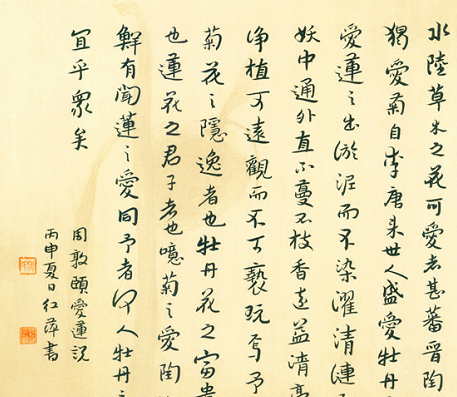 水陸草木之花可愛者甚蕃晉陶
獨愛菊自李唐来世人盛愛牡丹
愛蓮之出淤泥而不染濯清漣
妖中通外直不蔓不枝香遠益清亭
净植可遠觀而不可褻玩焉予
菊花之隱逸者也牡丹花之富貴
也蓮花之君子者也噫菊之愛陶
鮮有聞蓮之愛同予者何人牡丹之
宜乎衆矣
周敦頤愛蓮説
丙申夏日红萍書